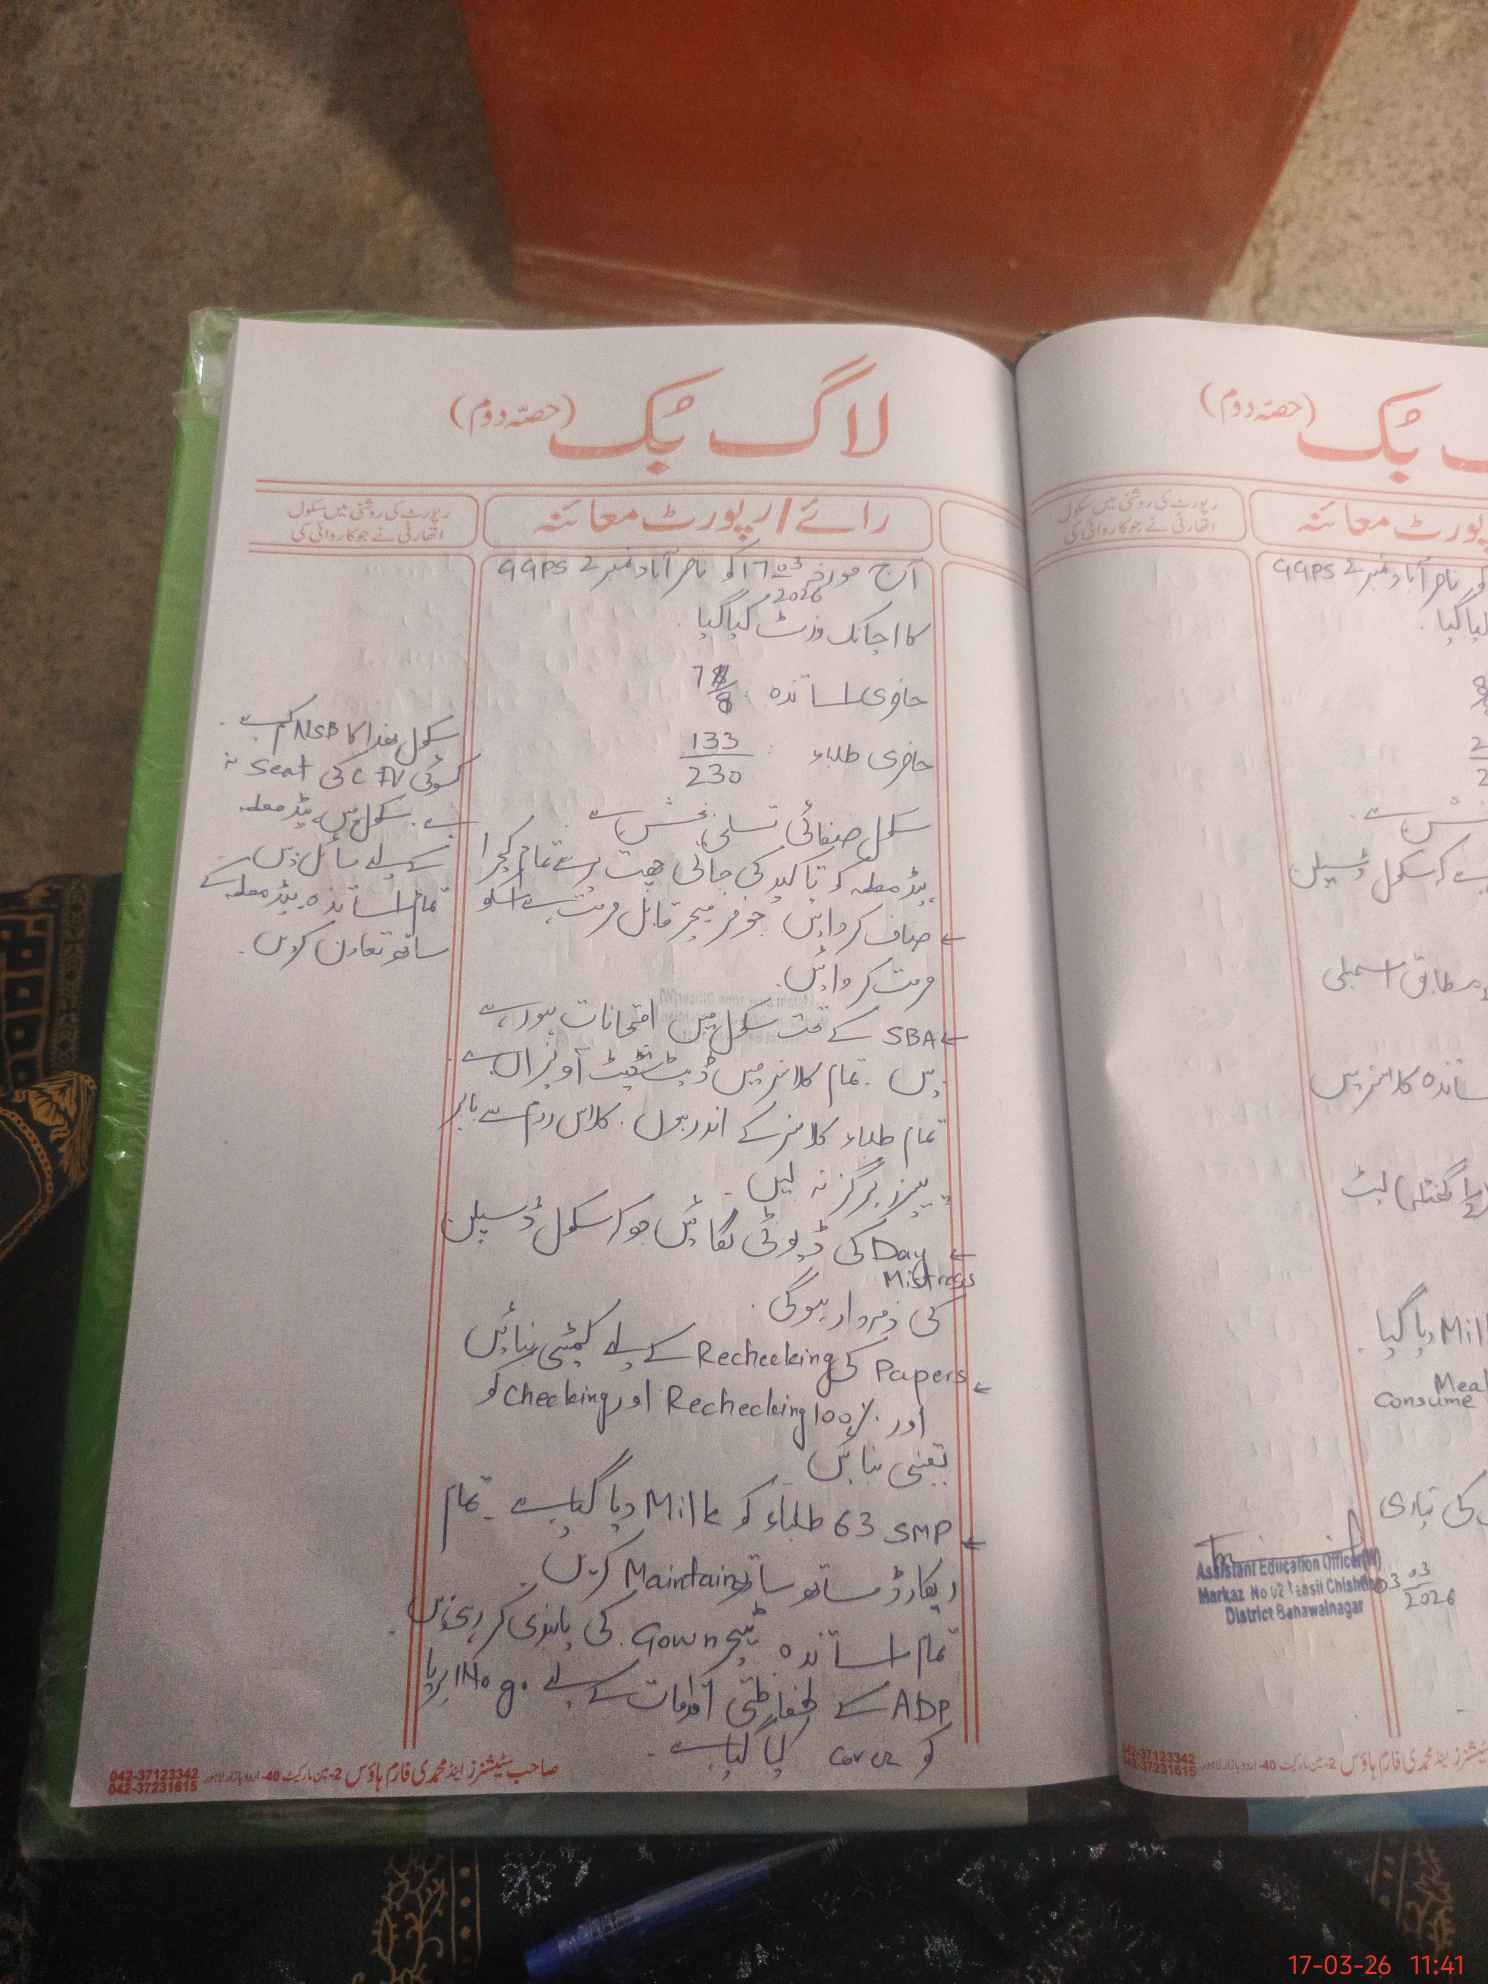 لاگ بک (حصہ دوم)
رائے/رپورٹ معائنہ
رپورٹ کی روشنی میں سکول
اتھارٹی نے جو کاروائی کی
آج مورخہ 17 03 2026 کو ناصر آباد نمبر 2 GGPS
کا اچانک وزٹ کیا گیا۔
حاضری اساتذہ : 7/8
حاضری طلباء : 133/230
سکول صفائی تسلی بخش ہے
ہیڈ معلمہ کو تاکید کی جاتی چھت پر سے تمام کچرا
صاف کروائیں جو فرنیچر قابل مرمت ہے اسکو
مرمت کروائیں۔
SBA کے تحت سکول میں امتحانات ہو رہے
ہیں۔ تمام کلاسز میں ڈیٹ شیٹ آویزاں ہے۔
تمام طلباء کلاسز کے اندر ہوں۔ کلاس روم سے باہر
پیپرز ہرگز نہ لیں۔
Day Mistress کی ڈیوٹی لگائیں جو کہ سکول ڈسپلن
کی ذمہ دار ہوگی۔
Papers کی Rechecking کے لیے کمیٹی بنائیں
اور 100% Rechecking اور checking کو
یقینی بنائیں
SMP 63 طلباء کو Milk دیا گیا ہے۔ تمام
ریکارڈ ساتھ ساتھ Maintain کریں۔
تمام اساتذہ ٹیچر Gown کی پابندی کر رہی ہیں۔
ADP کے حفاظتی اقدامات کے لیے
کو cover کیا گیا ہے۔
سکول ھذا کا NSB کم ہے۔
کوئی C IV کی Seat نہ
ہے۔ سکول میں ہیڈ معلمہ
کے لیے مسائل ہیں۔
تمام اساتذہ ہیڈ معلمہ کے
ساتھ تعاون کریں۔
صاحب سٹیشنرز اینڈ محمدی فارم ہاؤس 2- مین مارکیٹ 40- اردو بازار لاہور
042-37123342
042-37231615
ک بک (حصہ دوم)
پورٹ معائنہ
رپورٹ کی روشنی میں سکول
اتھارٹی نے جو کاروائی کی
کو ناصر آباد نمبر 2 GGPS
کیا گیا۔
ہے کہ سکول ڈسپلن
مطابق اسمبلی
اساتذہ کلاسز میں
لیٹ
Mil دیا گیا۔
Meal
Consume
کی تیاری
Assistant Education Officer(W)
Markaz No 02 Tehsil Chishtian
District Bahawalnagar
03 03 2026
042-37123342
042-37231615
سٹیشنرز اینڈ محمدی فارم ہاؤس 2- مین مارکیٹ 40- اردو بازار لاہور
17-03-26 11:41